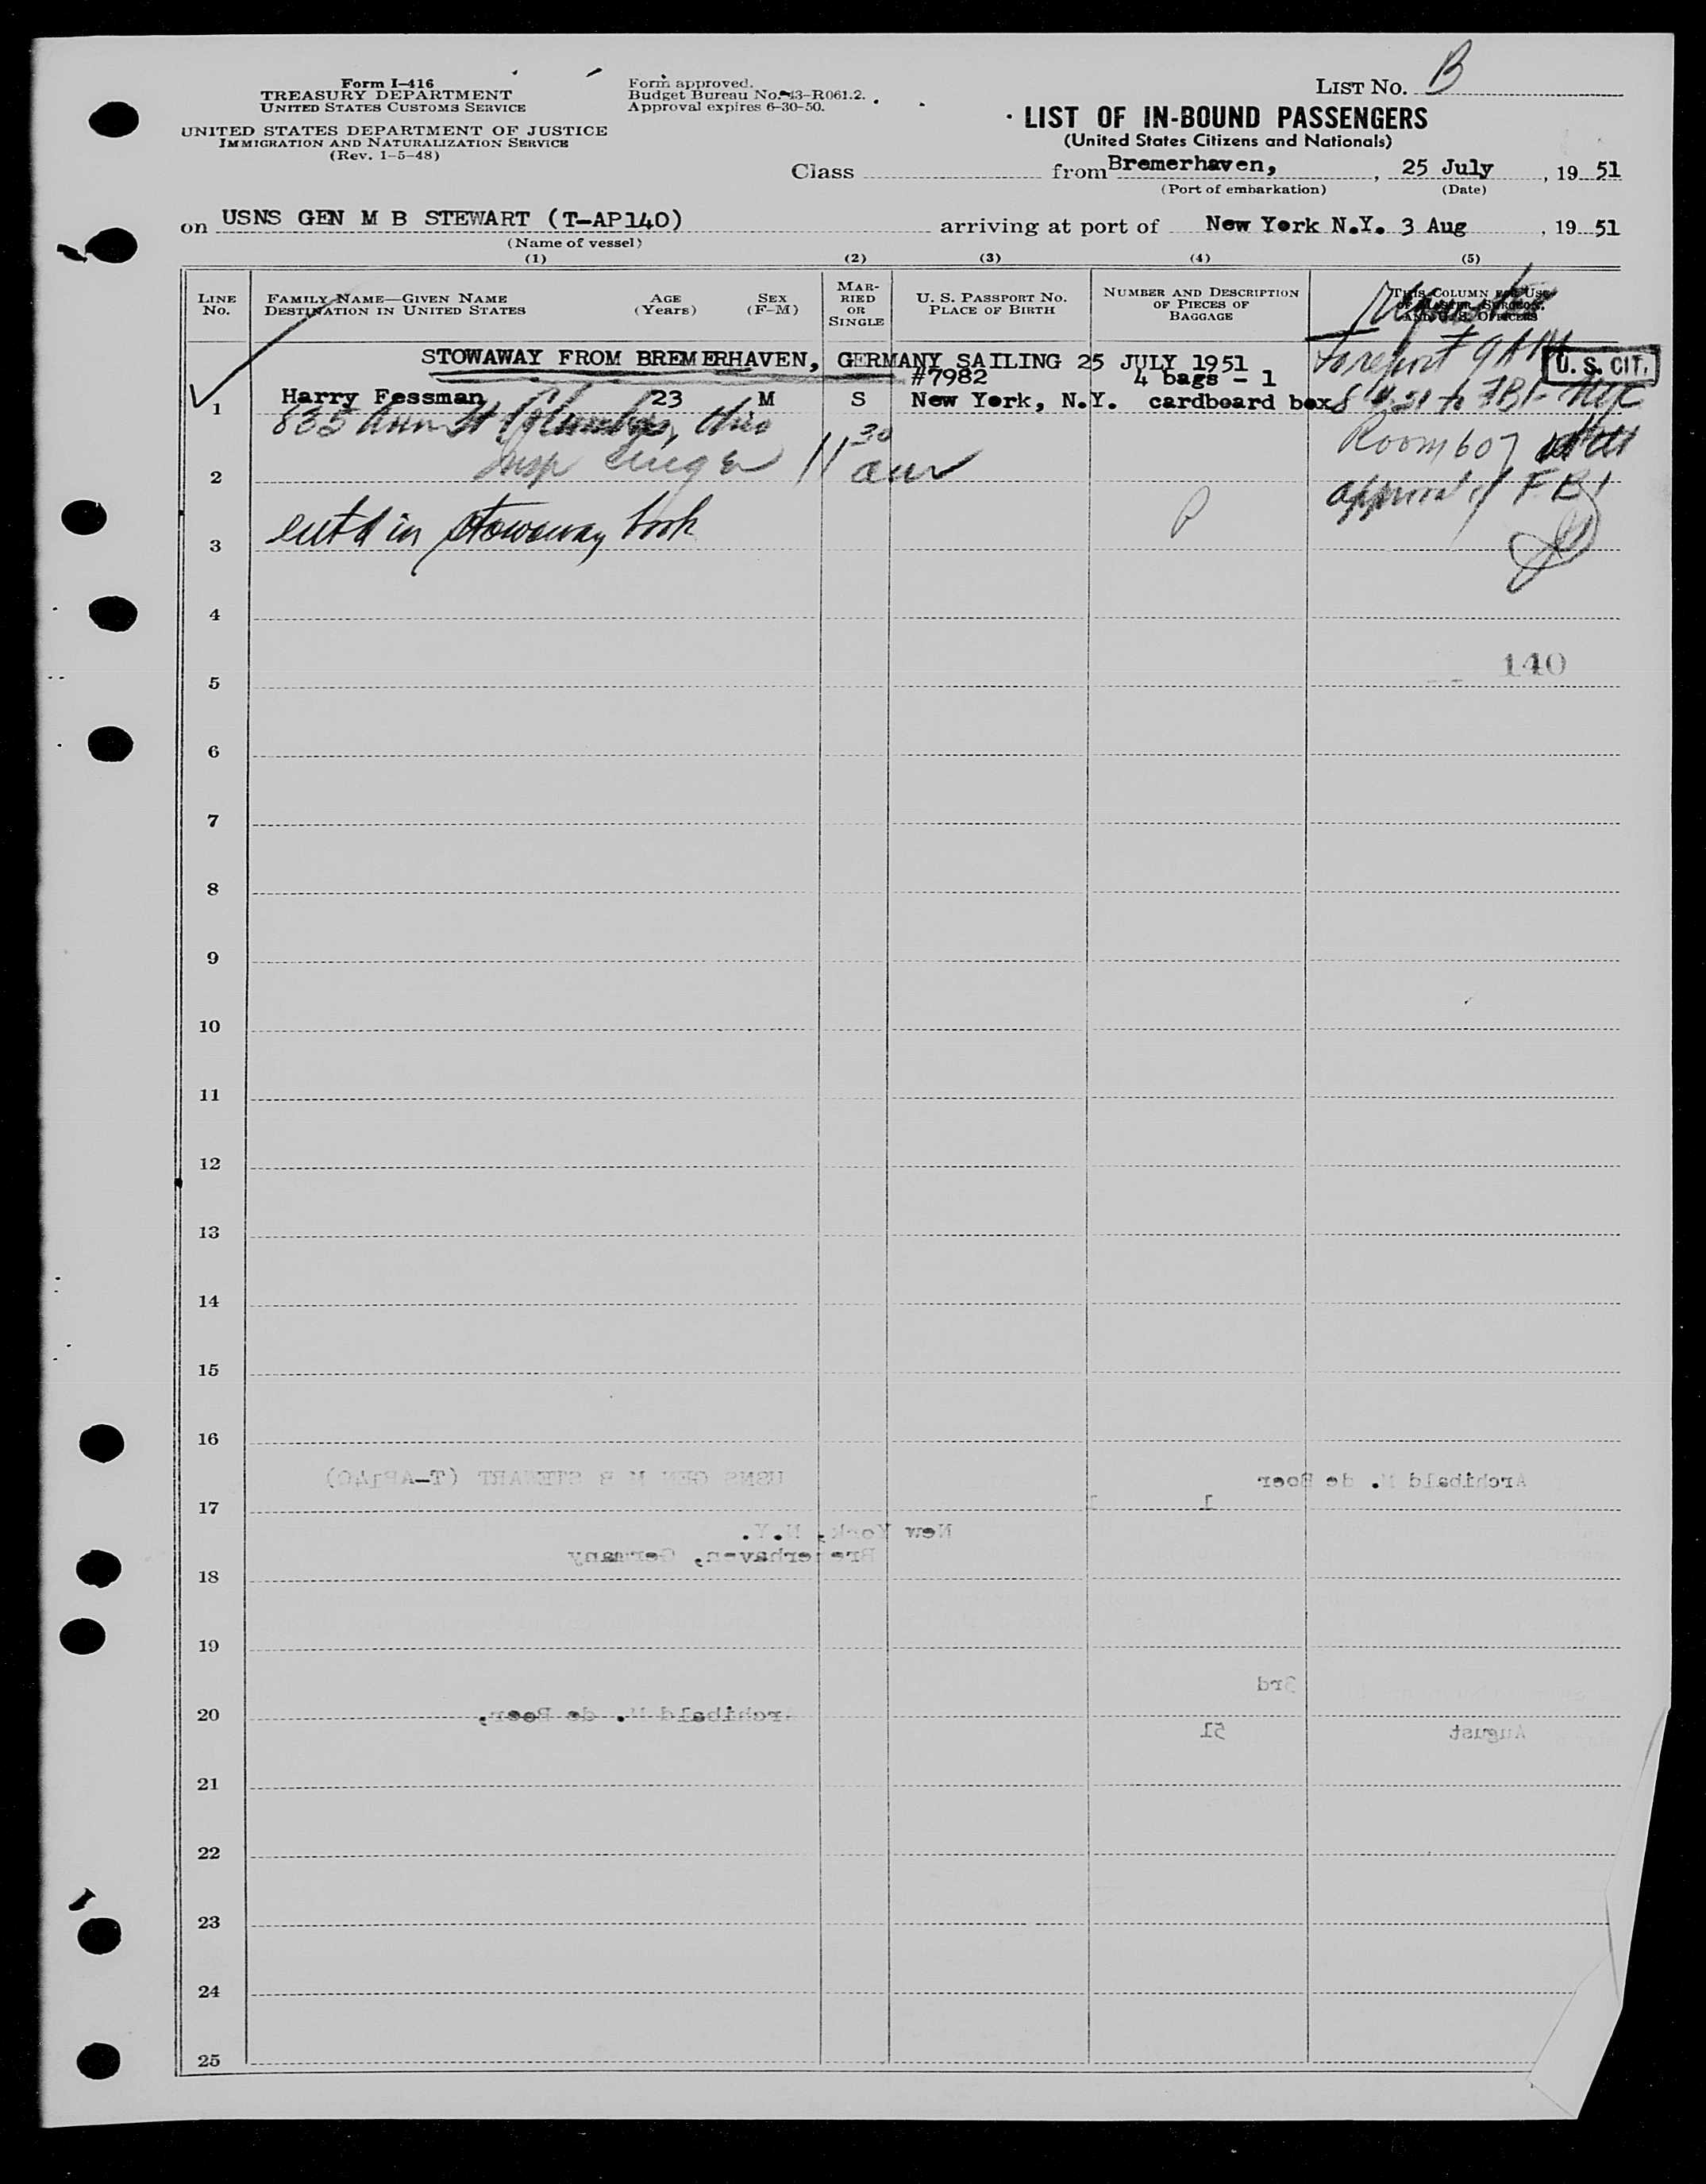 Form I-416
TREASURY DEPARTMENT
UNITED STATES CUSTOMS SERVICE
UNITED STATES DEPARTMENT OF JUSTICE
IMMIGRATION AND NATURALIZATION SERVICE
(Rev. 1-5-48)
Form approved.
Budget Bureau No. 43-R061.2.
Approval expires 6-30-50.
LIST No. B
LIST OF IN-BOUND PASSENGERS
(United States Citizens and Nationals)
Class from Bremerhaven, , 25 July , 19 51
(Port of embarkation) (Date)
on USNS GEN M B STEWART (T-AP140) arriving at port of New York N.Y. 3 Aug , 19 51
(Name of vessel)
(1) (2) (3) (4) (5)
LINE No.
FAMILY NAME—GIVEN NAME
DESTINATION IN UNITED STATES
AGE (Years)
SEX (F-M)
MARRIED OR SINGLE
U. S. PASSPORT No.
PLACE OF BIRTH
NUMBER AND DESCRIPTION OF PIECES OF BAGGAGE
THIS COLUMN FOR USE OF MASTER, SURGEON, AND U. S. OFFICERS
STOWAWAY FROM BREMERHAVEN, GERMANY SAILING 25 JULY 1951
to report 9 AM
U. S. CIT.
#7982 4 bags - 1
1 Harry Fessman 23 M S New York, N.Y. cardboard box
to FBI NYC
Columbus, Ohio
Room 607
Insp 11 30 am
2
approval of FBI
3 ent'd in stowaway book
4
140
5
6
7
8
9
10
11
12
13
14
15
16
USNS GEN M B STEWART (T-AP140) Archibald M. de Boer
17 1
New York, N.Y.
Bremerhaven, Germany
18
19
3rd
20 Archibald M. de Boer,
51 August
21
22
23
24
25